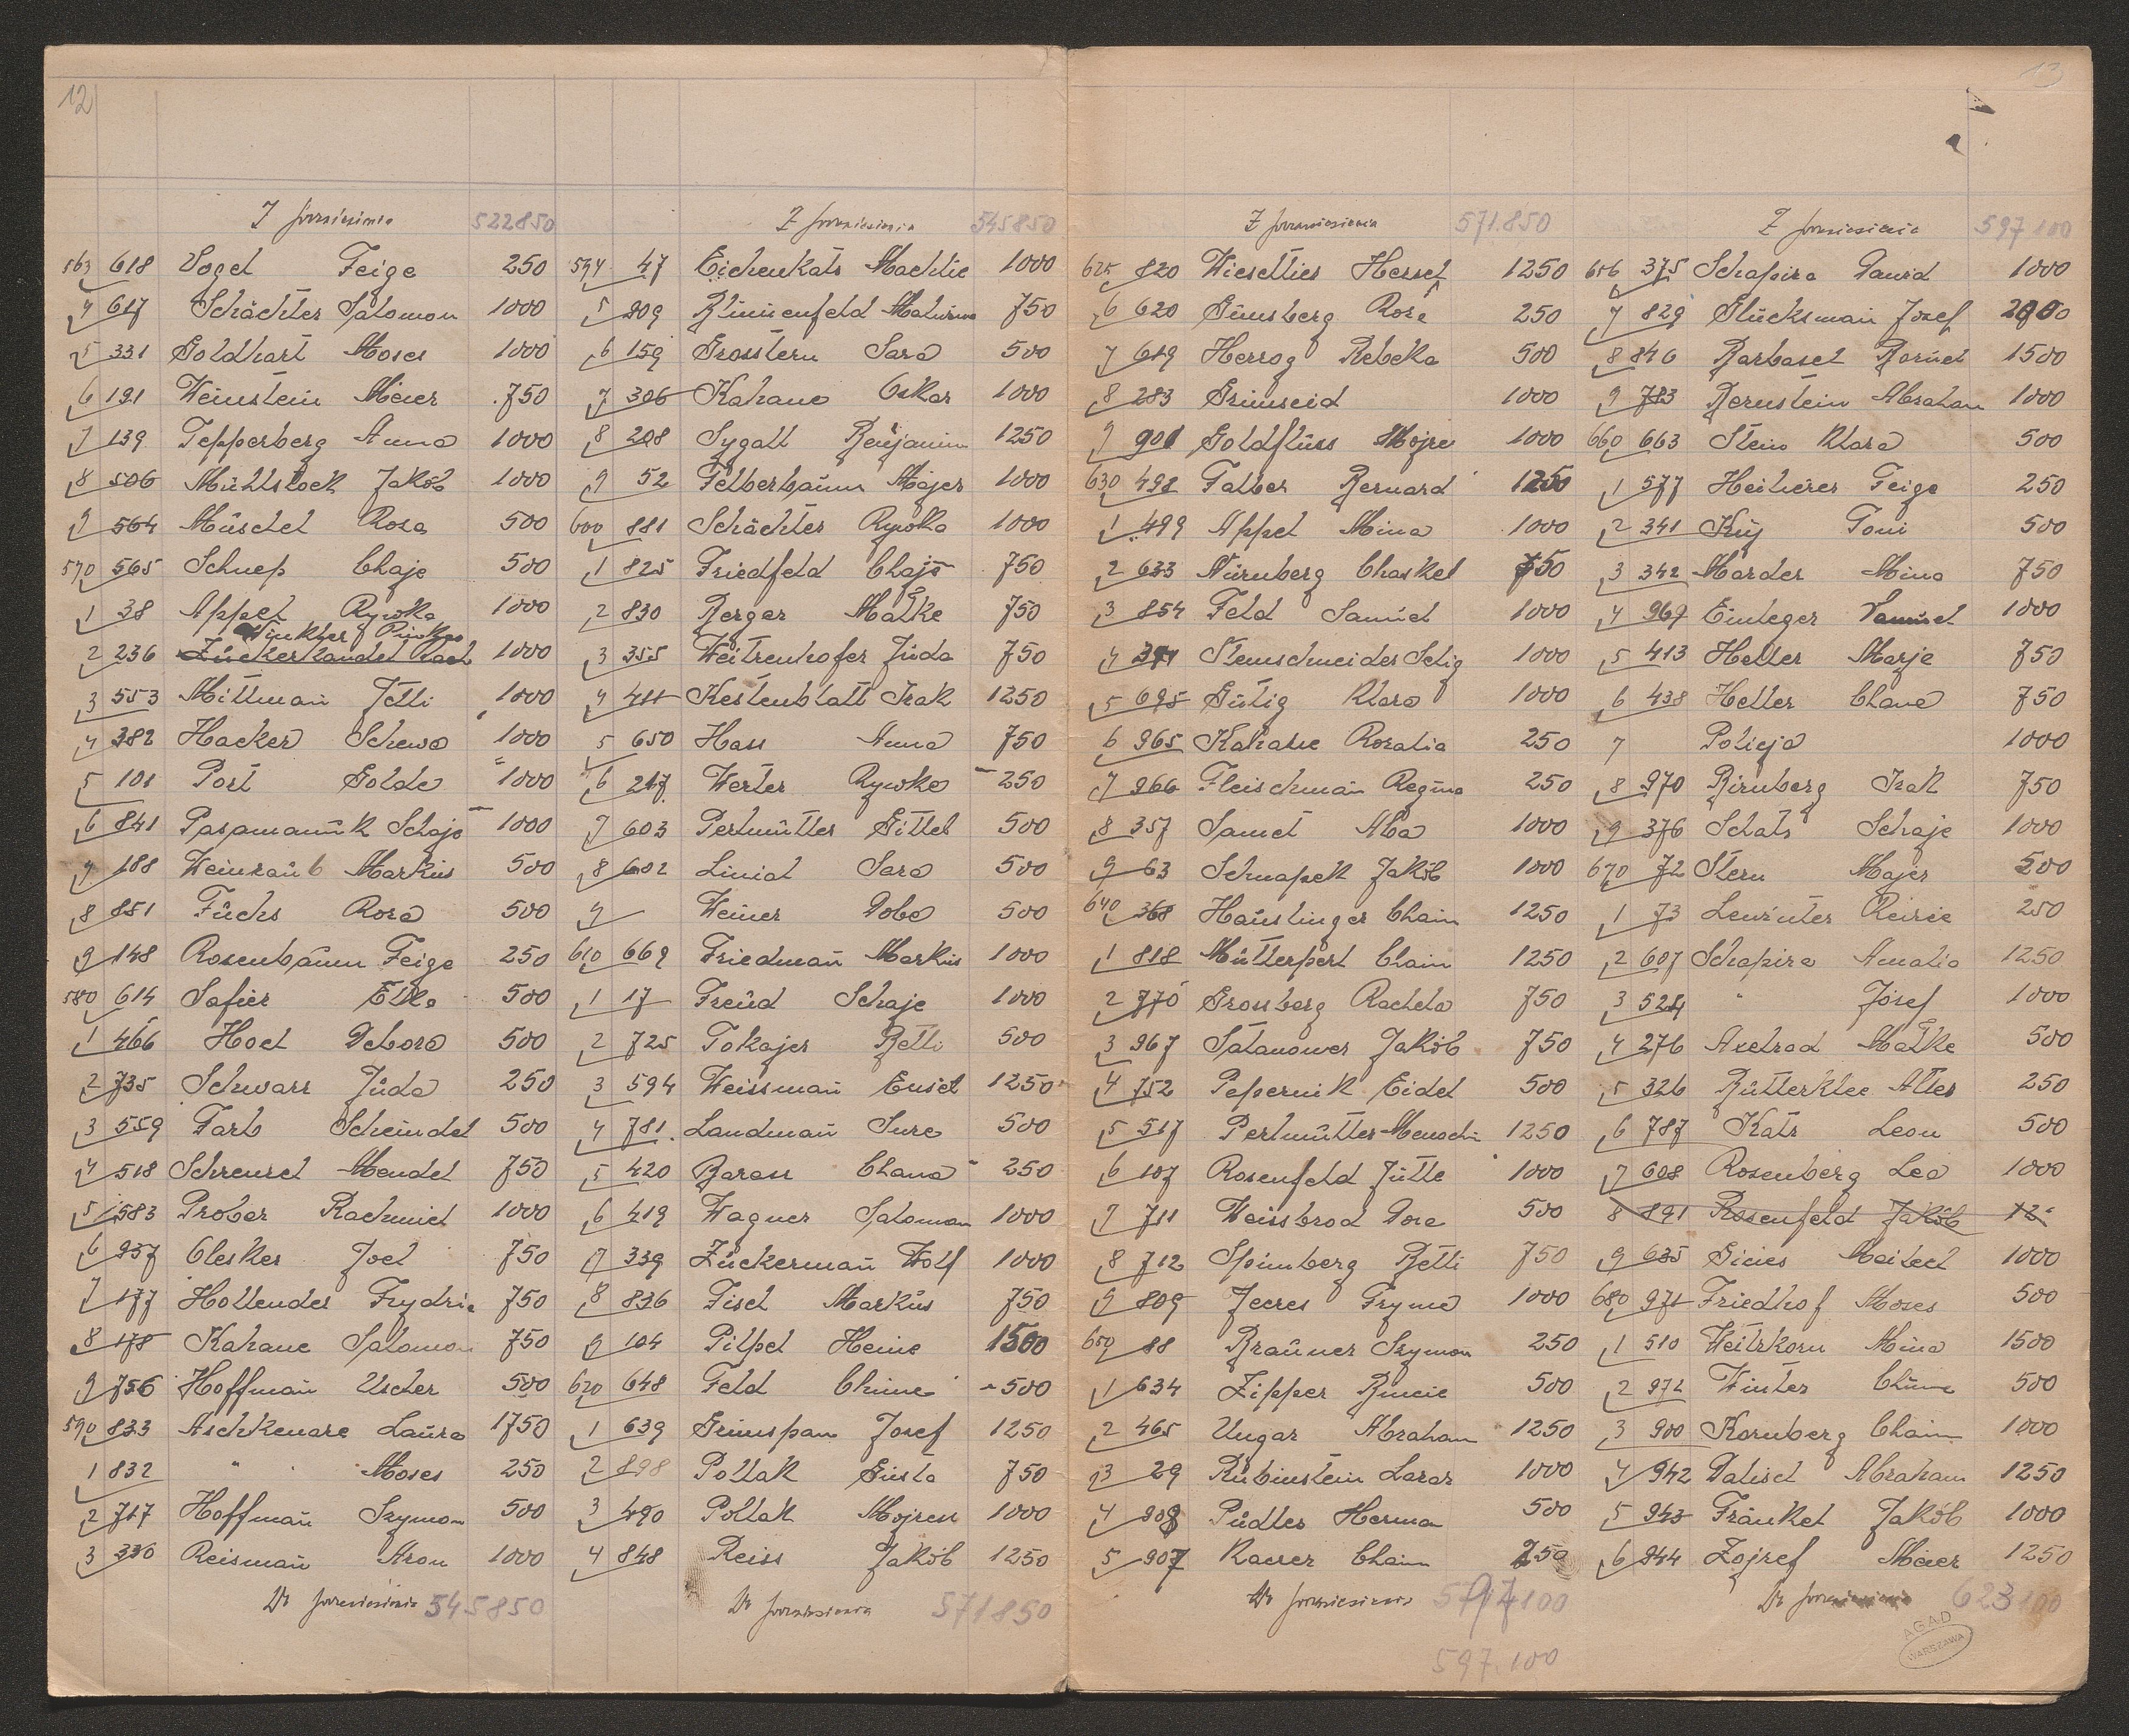 12
Z przeniesienia 522850
563 618 Vogel Feige 250
4 617 Schächter Salomon 1000
5 331 Goldhart Moses 1000
6 191 Weinstein Meier 750
7 139 Tepperberg Anna 1000
8 506 Mühlstock Jakób 1000
9 564 Müschel Rosa 500
570 565 Schnep Chaje 500
1 38 Appel Rywka 1000
Winkler Pinkas
2 236 Zückerkandel Rach 1000
3 553 Mittman Jetti 1000
4 382 Hacker Schewa 1000
5 101 Port Golde 1000
6 841 Pasamanük Schaje 1000
7 188 Weinraüb Markus 500
8 851 Füchs Rosa 500
9 148 Rosenbaum Feige 250
580 614 Safier Elka 500
1 466 Hoch Debora 500
2 735 Schwarz Jüda 250
3 559 Farb Scheindel 500
4 518 Schrenzel Mendel 750
5 583 Prober Rachmiel 1000
6 937 Olesker Joel 750
7 177 Hollender Frydric 750
8 178 Kahane Salomon 750
9 756 Hoffman Uscher 500
590 833 Aschkenaze Laura 1750
1 832 " Moses 250
2 717 Hoffman Szymon 500
3 330 Reisman Aron 1000
Do przeniesienia 545850
Z przeniesienia 545850
594 47 Eichenkatz Machlie 1000
5 209 Blumenfeld 750
6 159 Grosstern Sara 500
7 306 Kahane Oskar 1000
8 208 Sygall Benjamin 1250
9 52 Felberbaum Majer 1000
600 881 Schächter Rywka 1000
1 825 Friedfeld Chaje 750
2 830 Berger Malke 750
3 355 Weitzenhofer Jüda 750
4 411 Kestenblatt Izak 1250
5 650 Hass Anna 750
6 217 Werter Rywke 250
7 603 Perlmütter Gittel 500
8 602 Linial Sara 500
9 Weiner Dobe 500
610 669 Friedman Markus 1000
1 17 Freüd Schaje 1000
2 725 Tokajer Betti 500
3 594 Weissman Eusel 1250
4 781 Landman Sure 500
5 420 Barasz Chana 250
6 419 Wagner Salomon 1000
7 339 Zückerman Wolf 1000
8 836 Fisch Markus 750
9 104 Pilpel Heine 1500
620 648 Feld Chune 500
1 639 Grünspan Josef 1250
2 898 Pollak Gusta 750
3 490 Pollak Mojzesz 1000
4 848 Reiss Jakób 1250
Do przeniesienia 571850
13
Z przeniesienia 571.850
625 820 Wieseltier Hersch 1250
6 620 Günsberg Rosa 250
7 619 Herzog Rebeka 500
8 283 Grünseid 1000
9 901 Goldfluss Mojze 1000
630 498 Falber Bernard 1250
1 499 Appel Mina 1000
2 633 Nürnberg Chaskel 750
3 854 Feld Samuel 1000
4 371 Steinschneider Selig 1000
5 695 Gütig Klara 1000
6 965 Kahane Rozalia 250
7 966 Fleischman Regina 250
8 357 Samet Aba 1000
9 63 Schnapek Jakób 1000
640 368 Haüslinger Chaim 1250
1 818 Mütterperl Chaim 1250
2 770 Grossberg Rachela 750
3 967 Satanower Jakób 750
4 752 Pepernik Eidel 500
5 517 Perlmütter 1250
6 107 Rosenfeld Jütte 1000
7 711 Weissbrod Dora 500
8 712 Spinsberg Betti 750
9 809 Jeeres Fryma 1000
650 88 Braüner Szymon 250
1 634 Zipper Bincie 500
2 465 Ungar Abraham 1250
3 29 Rübinstein Lazar 1000
4 908 Püdler Herman 500
5 907 Chaim 250
Do przeniesienia 597100
597.100
Z przeniesienia 597100
656 375 Schapira Dawid 1000
7 829 Glücksman Josef 2000
8 846 Barbasch Boruch 1500
9 783 Bernstein Abraham 1000
660 663 Stein Klara 500
1 577 Feige 250
2 341 Toni 500
3 342 Marder Mina 750
4 969 Einleger Samuel 1000
5 413 Heller Marje 750
6 438 Heller Chane 750
7 Policja 1000
8 970 Birnberg Izak 750
9 376 Schatz Schaje 1000
670 72 Stern Majer 500
1 73 Lewinter Reizie 250
2 607 Schapira Amalia 1250
3 524 " Józef 1000
4 276 Axelrad Malke 500
5 326 Bütterklee Alter 250
6 787 Katz Leon 500
7 608 Rosenberg Lea 1000
8 891 Rosenfeld Jakób 12
9 635 Meilech 1000
680 971 Friedhof Moses 500
1 510 Weitzkorn Mina 1500
2 972 Winter Chüne 500
3 900 Kornberg Chaim 1000
4 942 Abraham 1250
5 943 Fränkel Jakób 1000
6 944 Zojref Meier 1250
Do przeniesienia 623100
A.G.A.D.
WARSZAWA